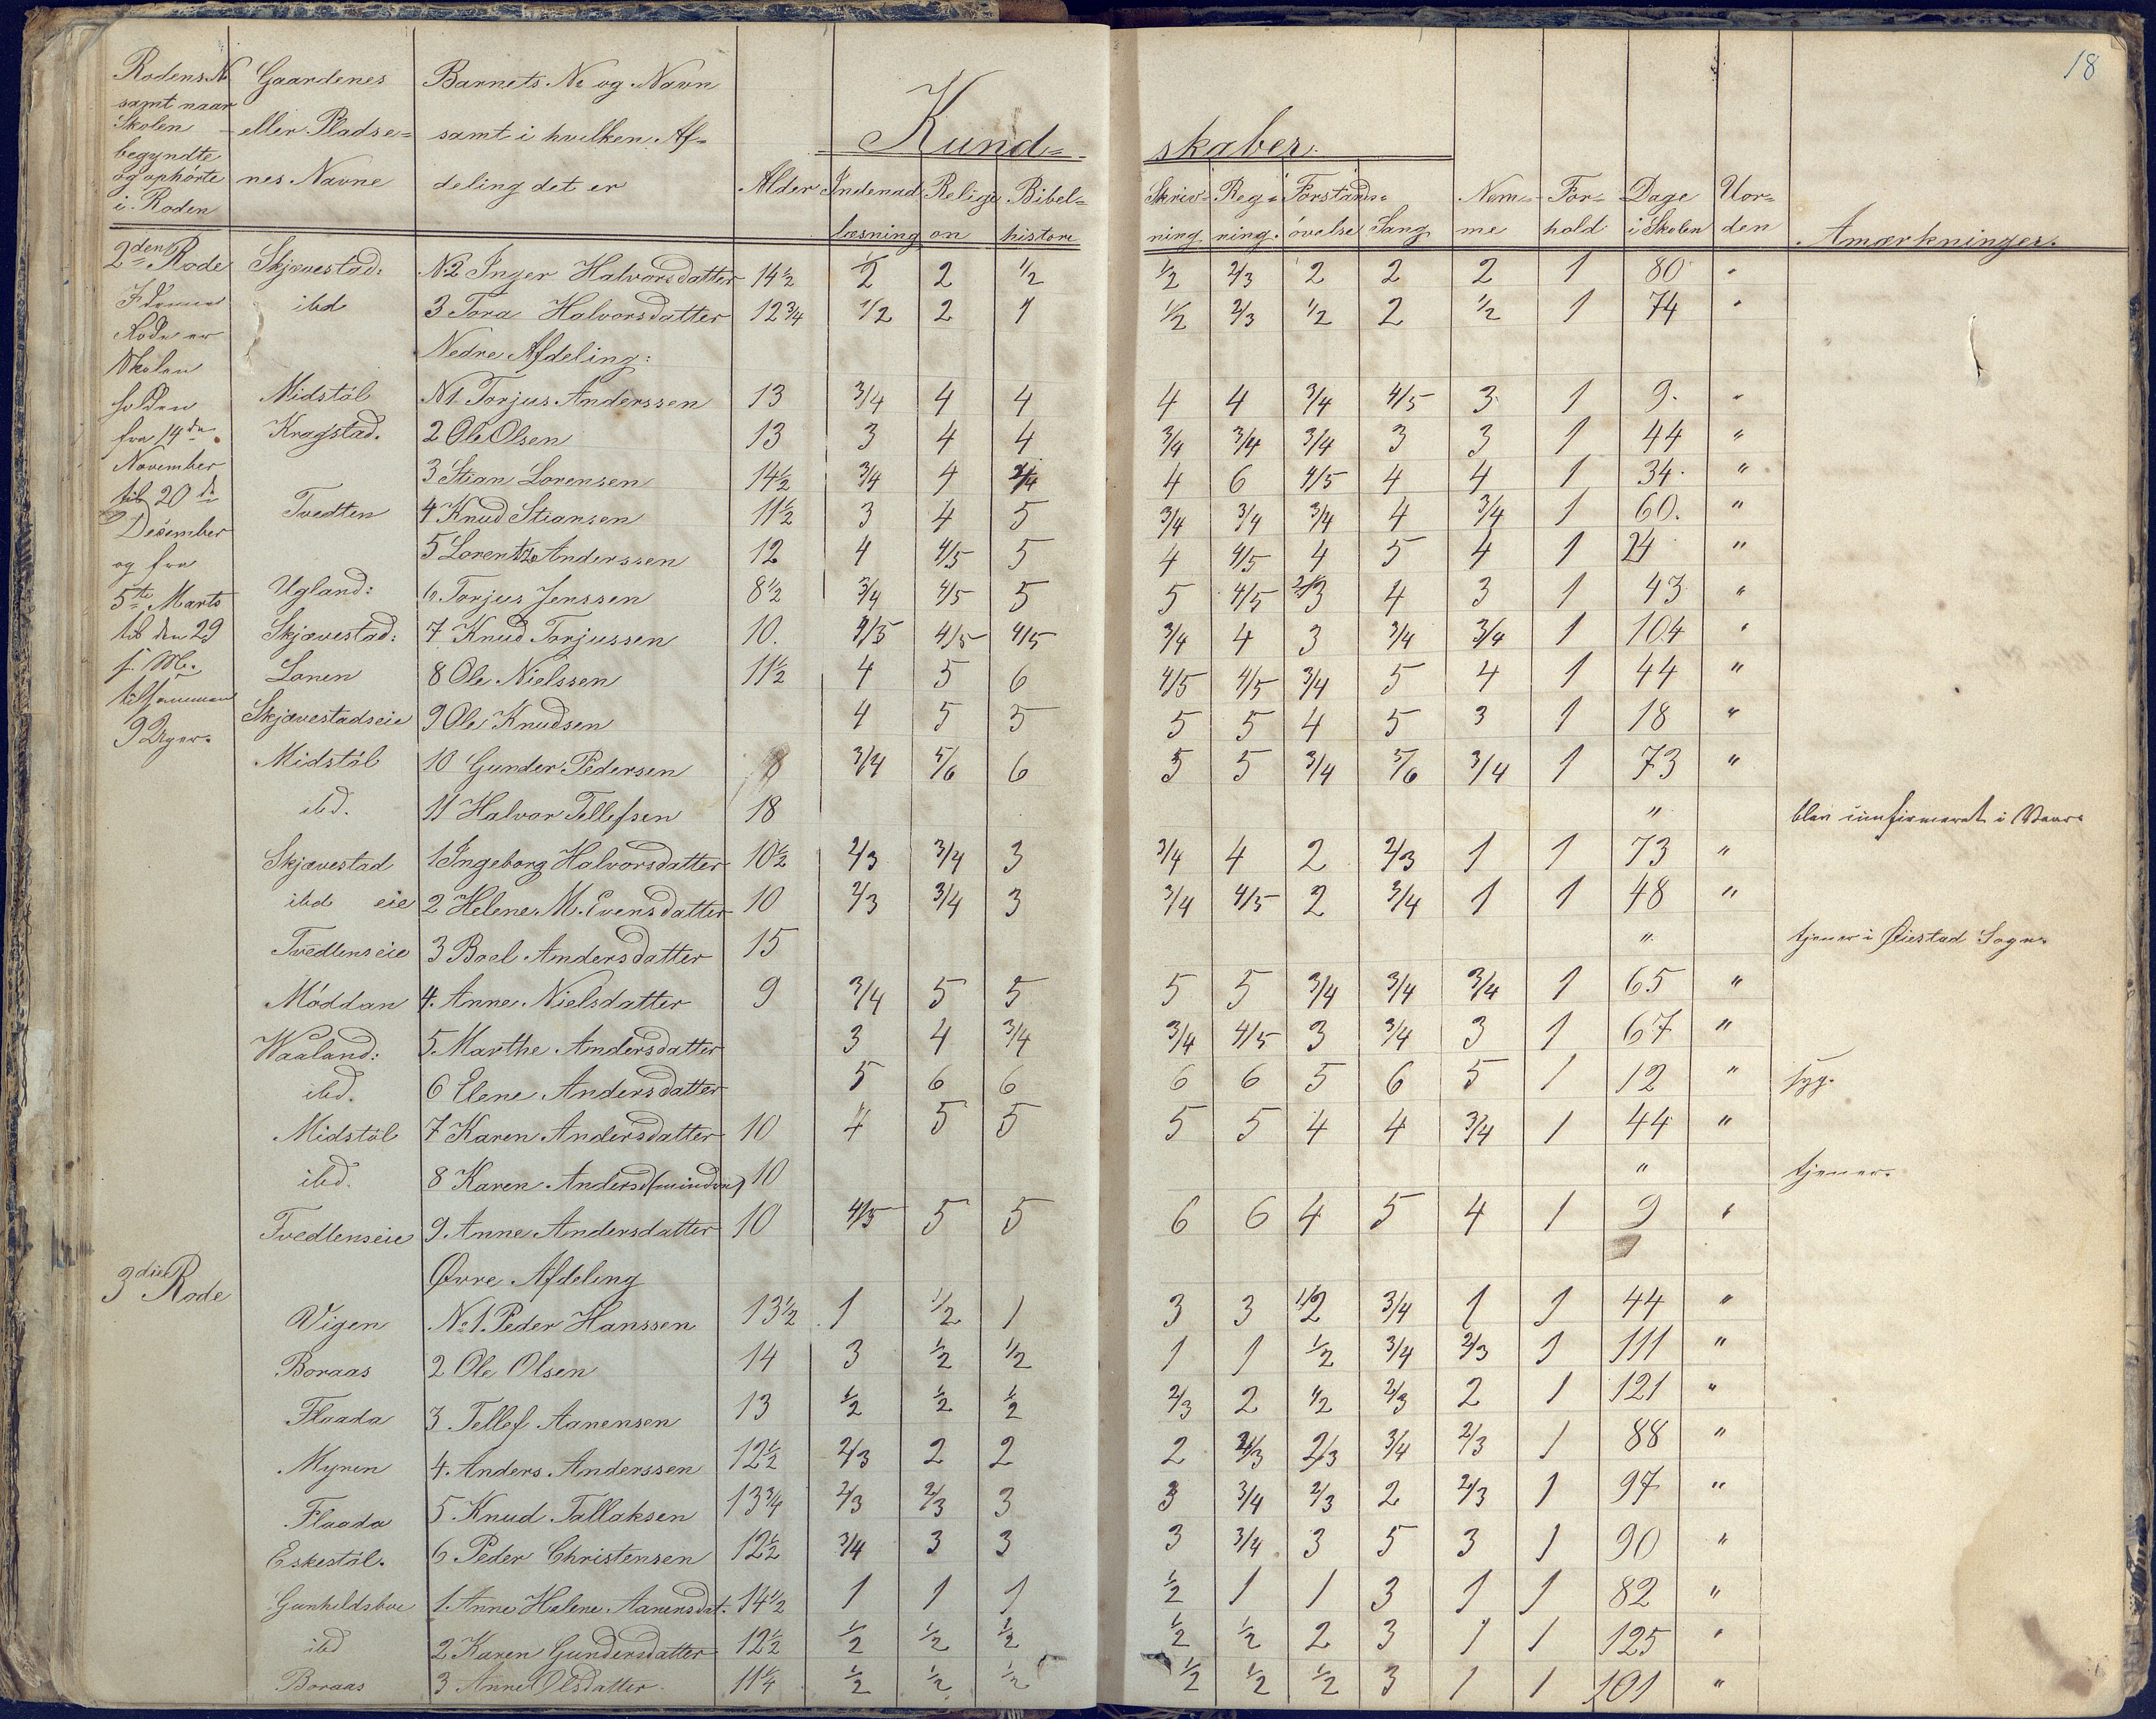 18
Rodens No samt naar Skolen begyndte og ophörte i Roden | Gaardenes eller Pladse= nes Navne | Barnets No og Navn samt i hvilken Af= deling det er | Alder | Kund= skaber.
Indenad læsning | Religi on | Bibel= histore | Skriv= ning | Reg= ning. | Forstands= övelse | Sang | Nem= me | For= hold | Dage i Skolen | Uor= den | Anmærkninger.
2den Rode Skjævestad: No2 Inger Halvorsdatter 14½ ½ 2 ½ ½ 2/3 2 2 2 1 80 "
ibd 3 Tora Halvorsdatter 12¾ 1/2 2 1 ½ 2/3 ½ 2 ½ 1 74 "
Rode er
Nedre Afdeling:
Skolen
holden Midstöl No1 Torjus Anderssen 13 3/4 4 4 4 4 3/4 4/5 3 1 9. "
fra 14de Kragstad. 2 Ole Olsen 13 3 4 4 3/4 3/4 3/4 3 3 1 44 "
November 3 Stian Lorensen 14½ 3/4 4 3/4 4 6 4/5 4 4 1 34. "
til 20de Tvedten 4 Knud Stiansen 11½ 3 4 5 3/4 3/4 3/4 4 3/4 1 60. "
December
og fra 5 Lorentz Anderssen 12 4 4/5 5 4 4/5 4 5 4 1 24 "
5te Marts Ugland: 6 Torjus Jenssen 8½ 3/4 4/5 5 5 4/5 3 4 3 1 43 "
til den 29 Skjævestad: 7 Knud Torjussen 10. 4/5 4/5 4/5 3/4 4 3 3/4 3/4 1 104 "
s. M. Lonen 8 Ole Nielssen 11½ 4 5 6 4/5 4/5 3/4 5 4 1 44 "
tilsammen Skjævestadseie 9 Ole Knudsen 4 5 5 5 5 4 5 3 1 18 "
9 Uger.
Midstöl 10 Gunder Pedersen 8 3/4 5/6 6 5 5 3/4 5/6 3/4 1 73 "
ibd. 11 Halvor Tellefsen 18 " blev confirmeret i Vaar.
Skjævestad 1 Ingeborg Halvorsdatter 10½ 2/3 3/4 3 3/4 4 2 2/3 1 1 73 "
ibd eie 2 Helene M. Evensdatter 10 2/3 3/4 3 3/4 4/5 2 3/4 1 1 48 "
Tvedtenseie 3 Boel Andersdatter 15 " tjener i Øiestad Sogn.
Möddan 4. Anne Nielsdatter 9 3/4 5 5 5 5 3/4 3/4 3/4 1 65 "
Waaland: 5. Marthe Andersdatter 3 4 3/4 3/4 4/5 3 3/4 3 1 67 "
ibd. 6 Elene Andersdatter 5 6 6 6 6 5 6 5 1 12 " syg.
Midstöl 7 Karen Andersdatter 10 4 5 5 5 5 4 4 3/4 1 44 "
ibd. 8 Karen Andersd (mindre) 10 " tjener.
Tvedtenseie 9 Anne Andersdatter 10 4/5 5 5 6 6 4 5 4 1 9 "
3die Rode
Øvre Afdeling
Vigen No1. Peder Hanssen 13½ 1 ½ 1 3 3 1/2 3/4 1 1 44 "
Boraas 2 Ole Olsen 14 3 ½ ½ 1 1 ½ 3/4 2/3 1 111 "
Flaada 3 Tellef Aanensen 13 ½ ½ ½ 2/3 2 ½ 2/3 2 1 121 "
Myren 4. Anders Anderssen 12½ 2/3 2 2 2 2/3 2/3 3/4 2/3 1 88 "
Flaada 5 Knud Tallaksen 13¾ 2/3 2/3 3 3 3/4 2/3 2 2/3 1 97 "
Eskestöl. 6 Peder Christensen 12½ 3/4 3 3 3 3/4 3 5 3 1 90 "
Gunhildsboe 1. Anne Helene Aanensdat. 14½ 1 1 1 ½ 1 1 3 1 1 82 "
ibd 2 Karen Gundersdatter 12½ ½ ½ ½ ½ ½ 2 3 1 1 125 "
Boraas 3 Anne Olsdatter 11¼ ½ ½ ½ ½ ½ ½ 3 1 1 101 "